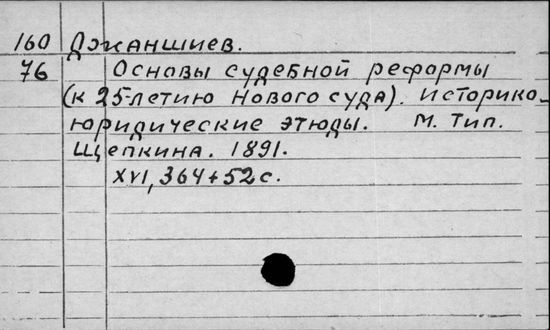 160 Джаншиев.
76 Основы судебной реформы
(к 25-летию нового суда). Историко-
юридические этюды. М. Тип.
Щепкина. 1891.
XVI, 364+52с.